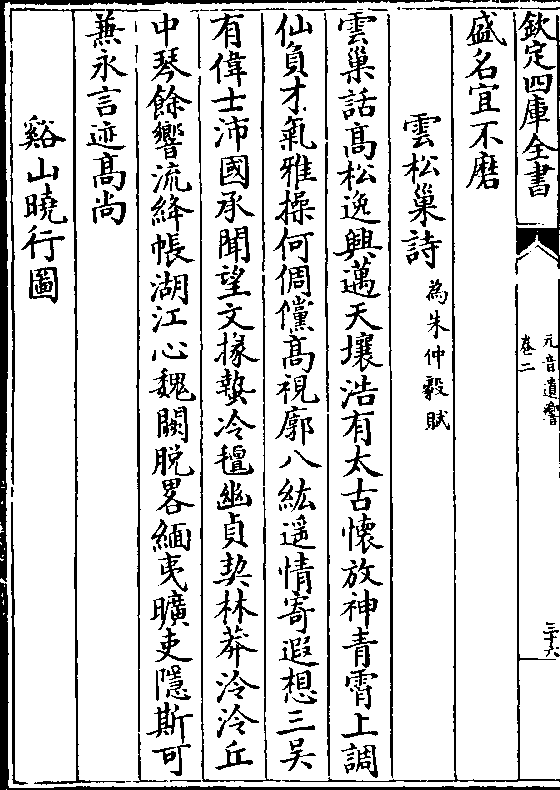 欽定四庫全書
元音遺響
卷二
三十六
盛名宜不磨
雲松巢詩
為朱仲毅賦
雲巢話髙松逸興邁天壤浩有太古懷放神青霄上調
仙負才氣雅操何倜儻髙視廓八紘遥情寄遐想三吴
有偉士沛國承聞望文掾蟄冷氊幽貞契林莽泠泠丘
中琴餘響流絳帳湖江心魏闕脱畧緬夷曠吏隱斯可
兼永言迹髙尚
谿山曉行圖